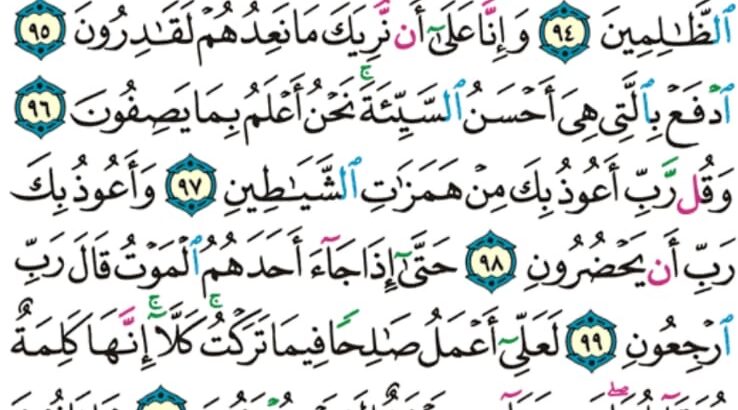 ٱلظَّٰلِمِينَ ٩٤ وَإِنَّا عَلَىٰٓ أَن نُّرِيَكَ مَا نَعِدُهُمۡ لَقَٰدِرُونَ ٩٥
ٱدۡفَعۡ بِٱلَّتِي هِيَ أَحۡسَنُ ٱلسَّيِّئَةَۚ نَحۡنُ أَعۡلَمُ بِمَا يَصِفُونَ ٩٦
وَقُل رَّبِّ أَعُوذُ بِكَ مِنۡ هَمَزَٰتِ ٱلشَّيَٰطِينِ ٩٧ وَأَعُوذُ بِكَ
رَبِّ أَن يَحۡضُرُونِ ٩٨ حَتَّىٰٓ إِذَا جَآءَ أَحَدَهُمُ ٱلۡمَوۡتُ قَالَ رَبِّ
ٱرۡجِعُونِ ٩٩ لَعَلِّيٓ أَعۡمَلُ صَٰلِحٗا فِيمَا تَرَكۡتُۚ كَلَّآۚ إِنَّهَا كَلِمَةٌ